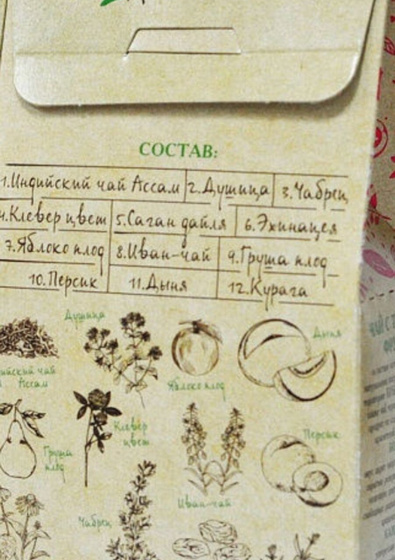 СОСТАВ:
1.Индийский чай Ассам 2.Душица 3.Чабрец
4.Клевер цвет 5.Саган дайля 6.Эхинацея
7.Яблоко плод 8.Иван-чай 9.Груша плод
10.Персик 11.Дыня 12.Курага
Душица
Дыня
чай
Ассам
Яблоко плод
Клевер
цвет
Персик
Груша
плод
Иван-чай
Чабрец